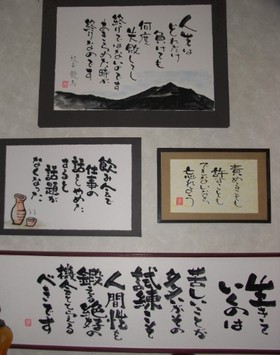 人生は
どれだけ
負けても
何度
失敗しても
終りではないのです
あきらめた時が
終りなのです
飲み会で
仕事の
話をやめた
すると
話題が
なくなった
責めることも
許すことも
忘れよう
生きて
いくのは
苦しいことが
多いがその
試練こそ
人間性を
鍛える絶好の
機会
べきです